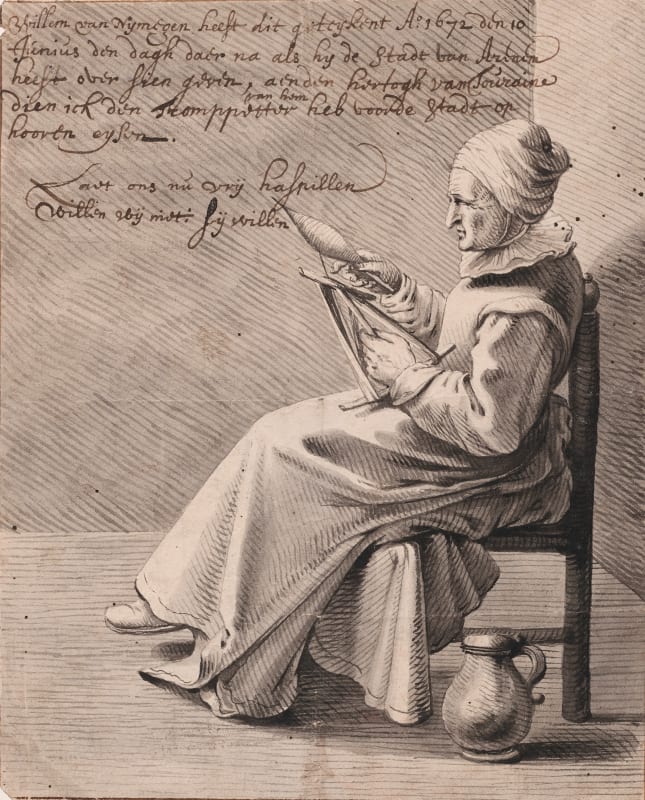 Willem van Nymegen heeft dit geteykent Aº 1672 den 10
Junius den dagh daer na als hy de Stadt van
heeft over sien geven, aenden hertogh van Touraine
dien ick den Tromppetter van hem heb voor de Stadt op
hooren eysen.
Laet ons nu vrij haspillen
Willen wij niet: sij willen